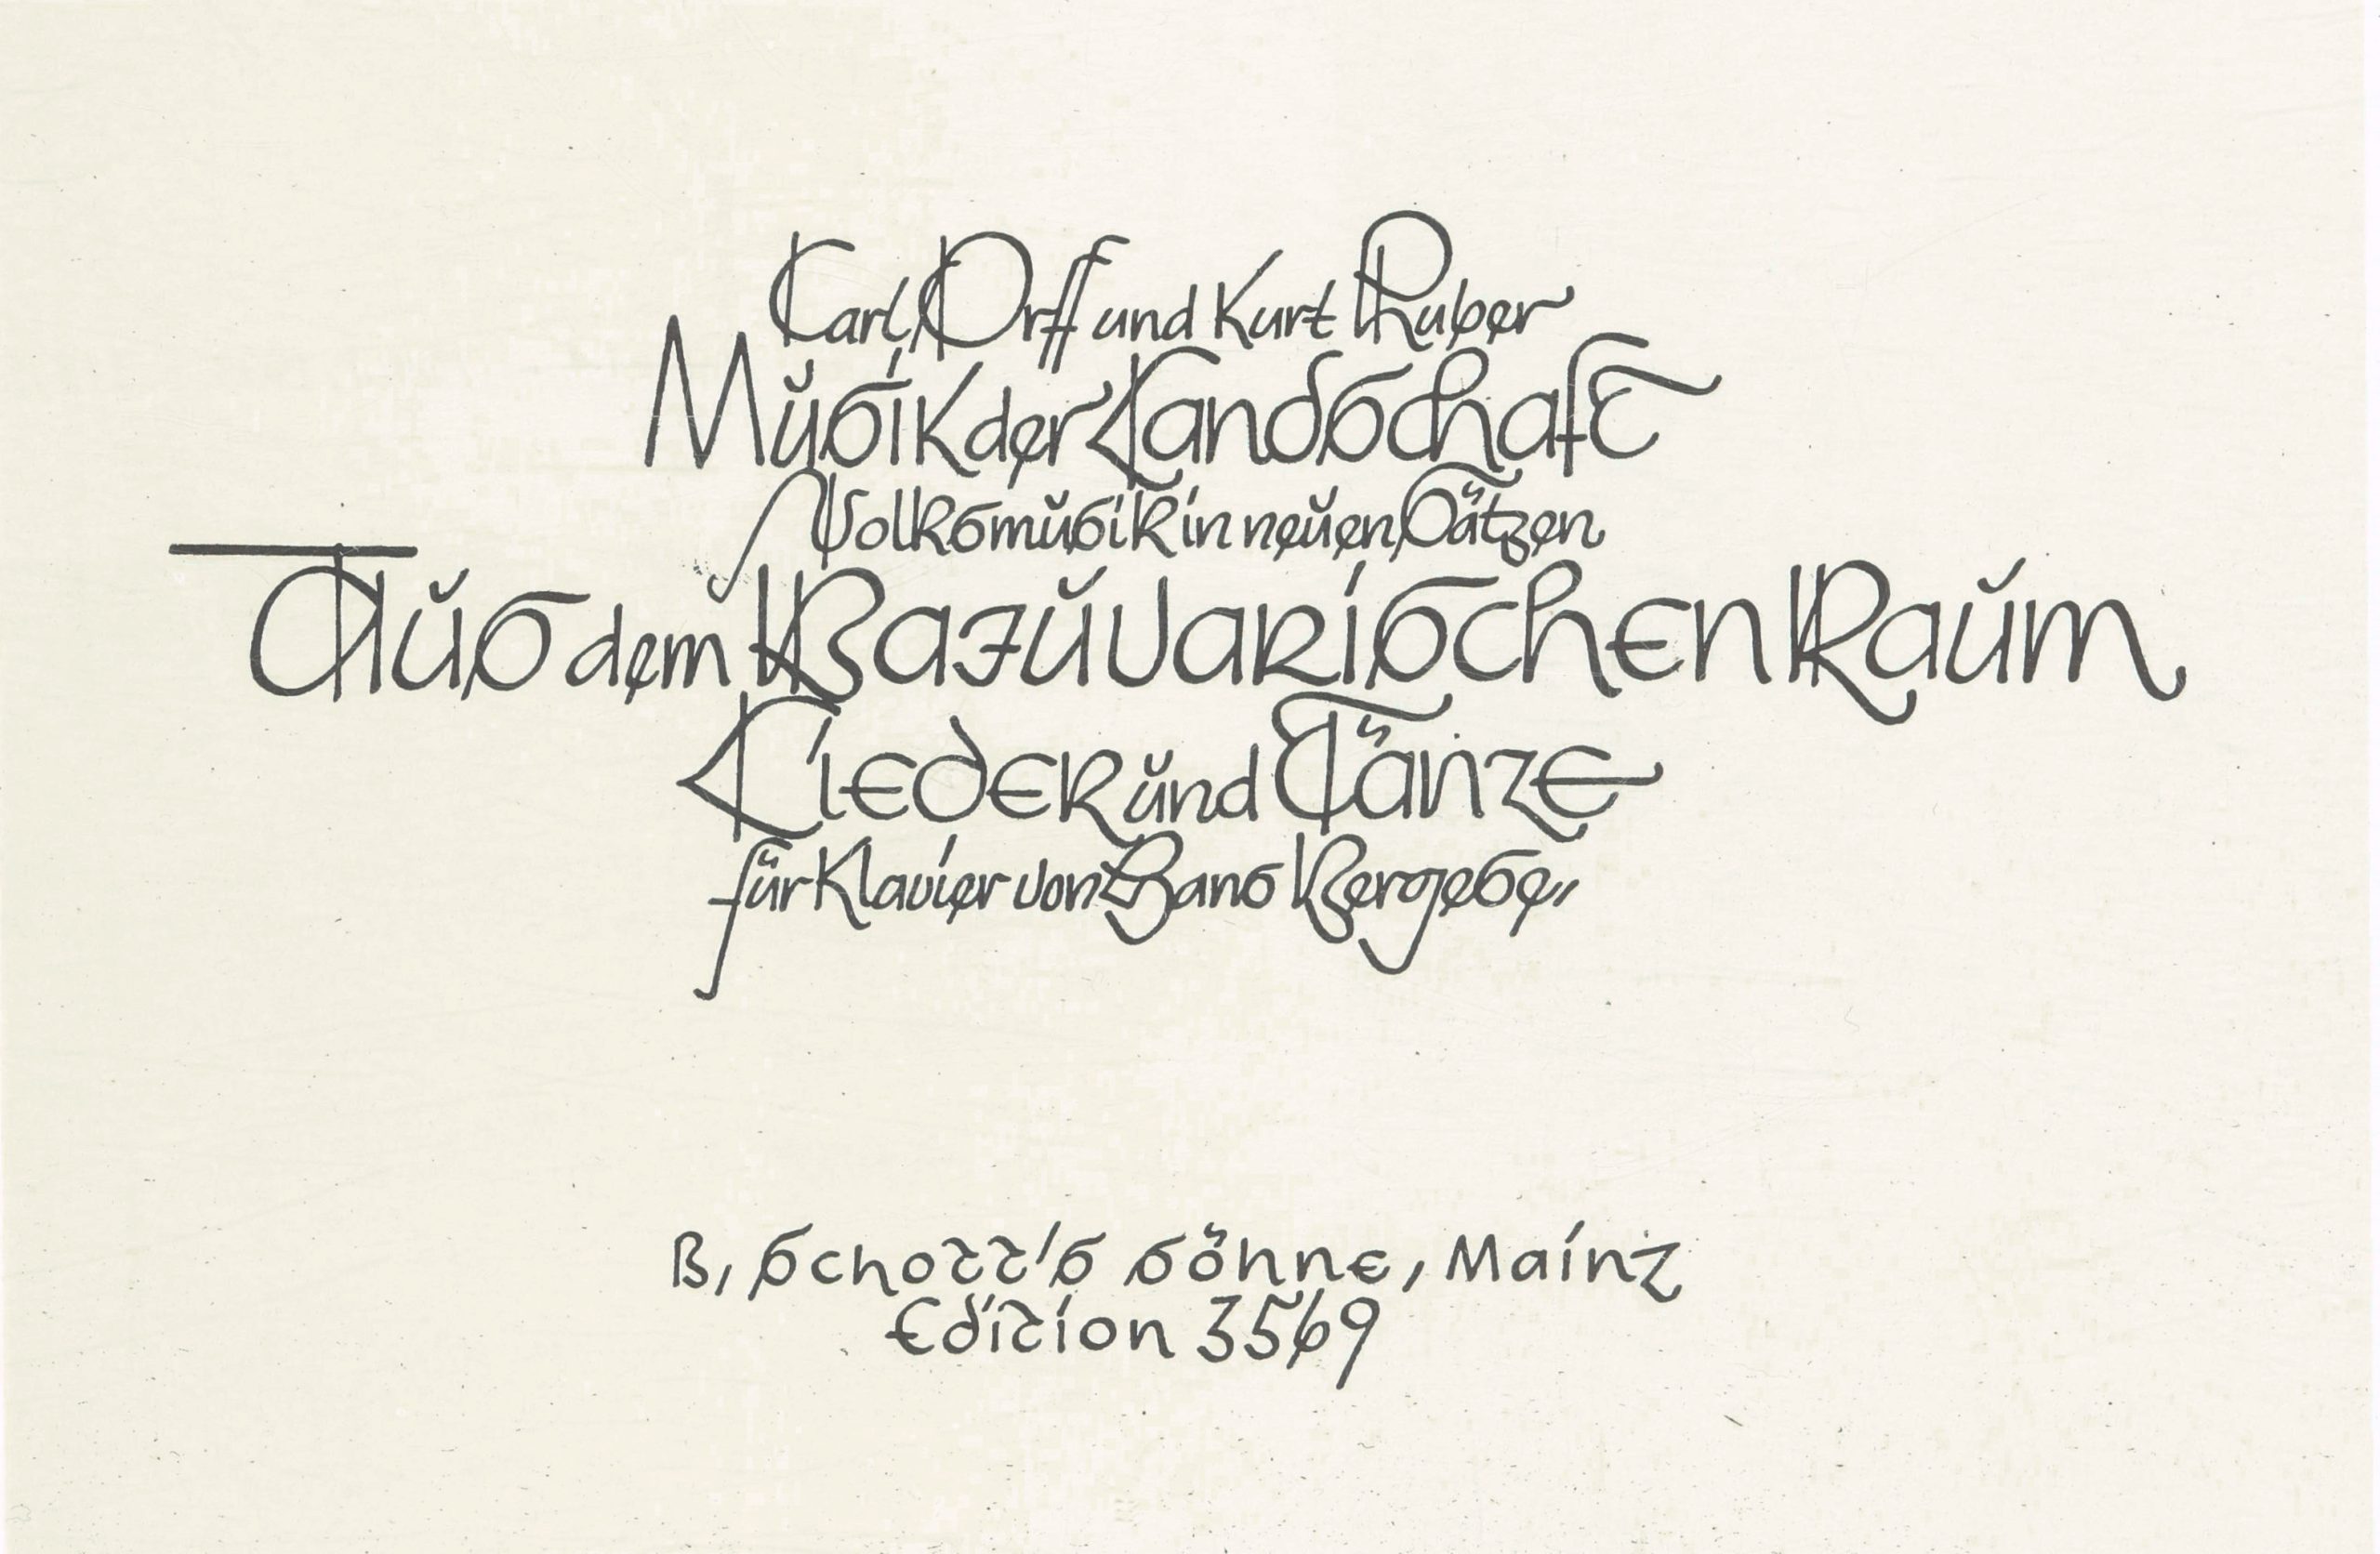 Carl Orff und Kurt Huber
Musik der Landschaft
Volksmusik in neuen Sätzen
Aus dem Bajuvarischen Raum
Lieder und Tänze
für Klavier von Hans Bergese
B. Schott's Söhne, Mainz
Edition 3569